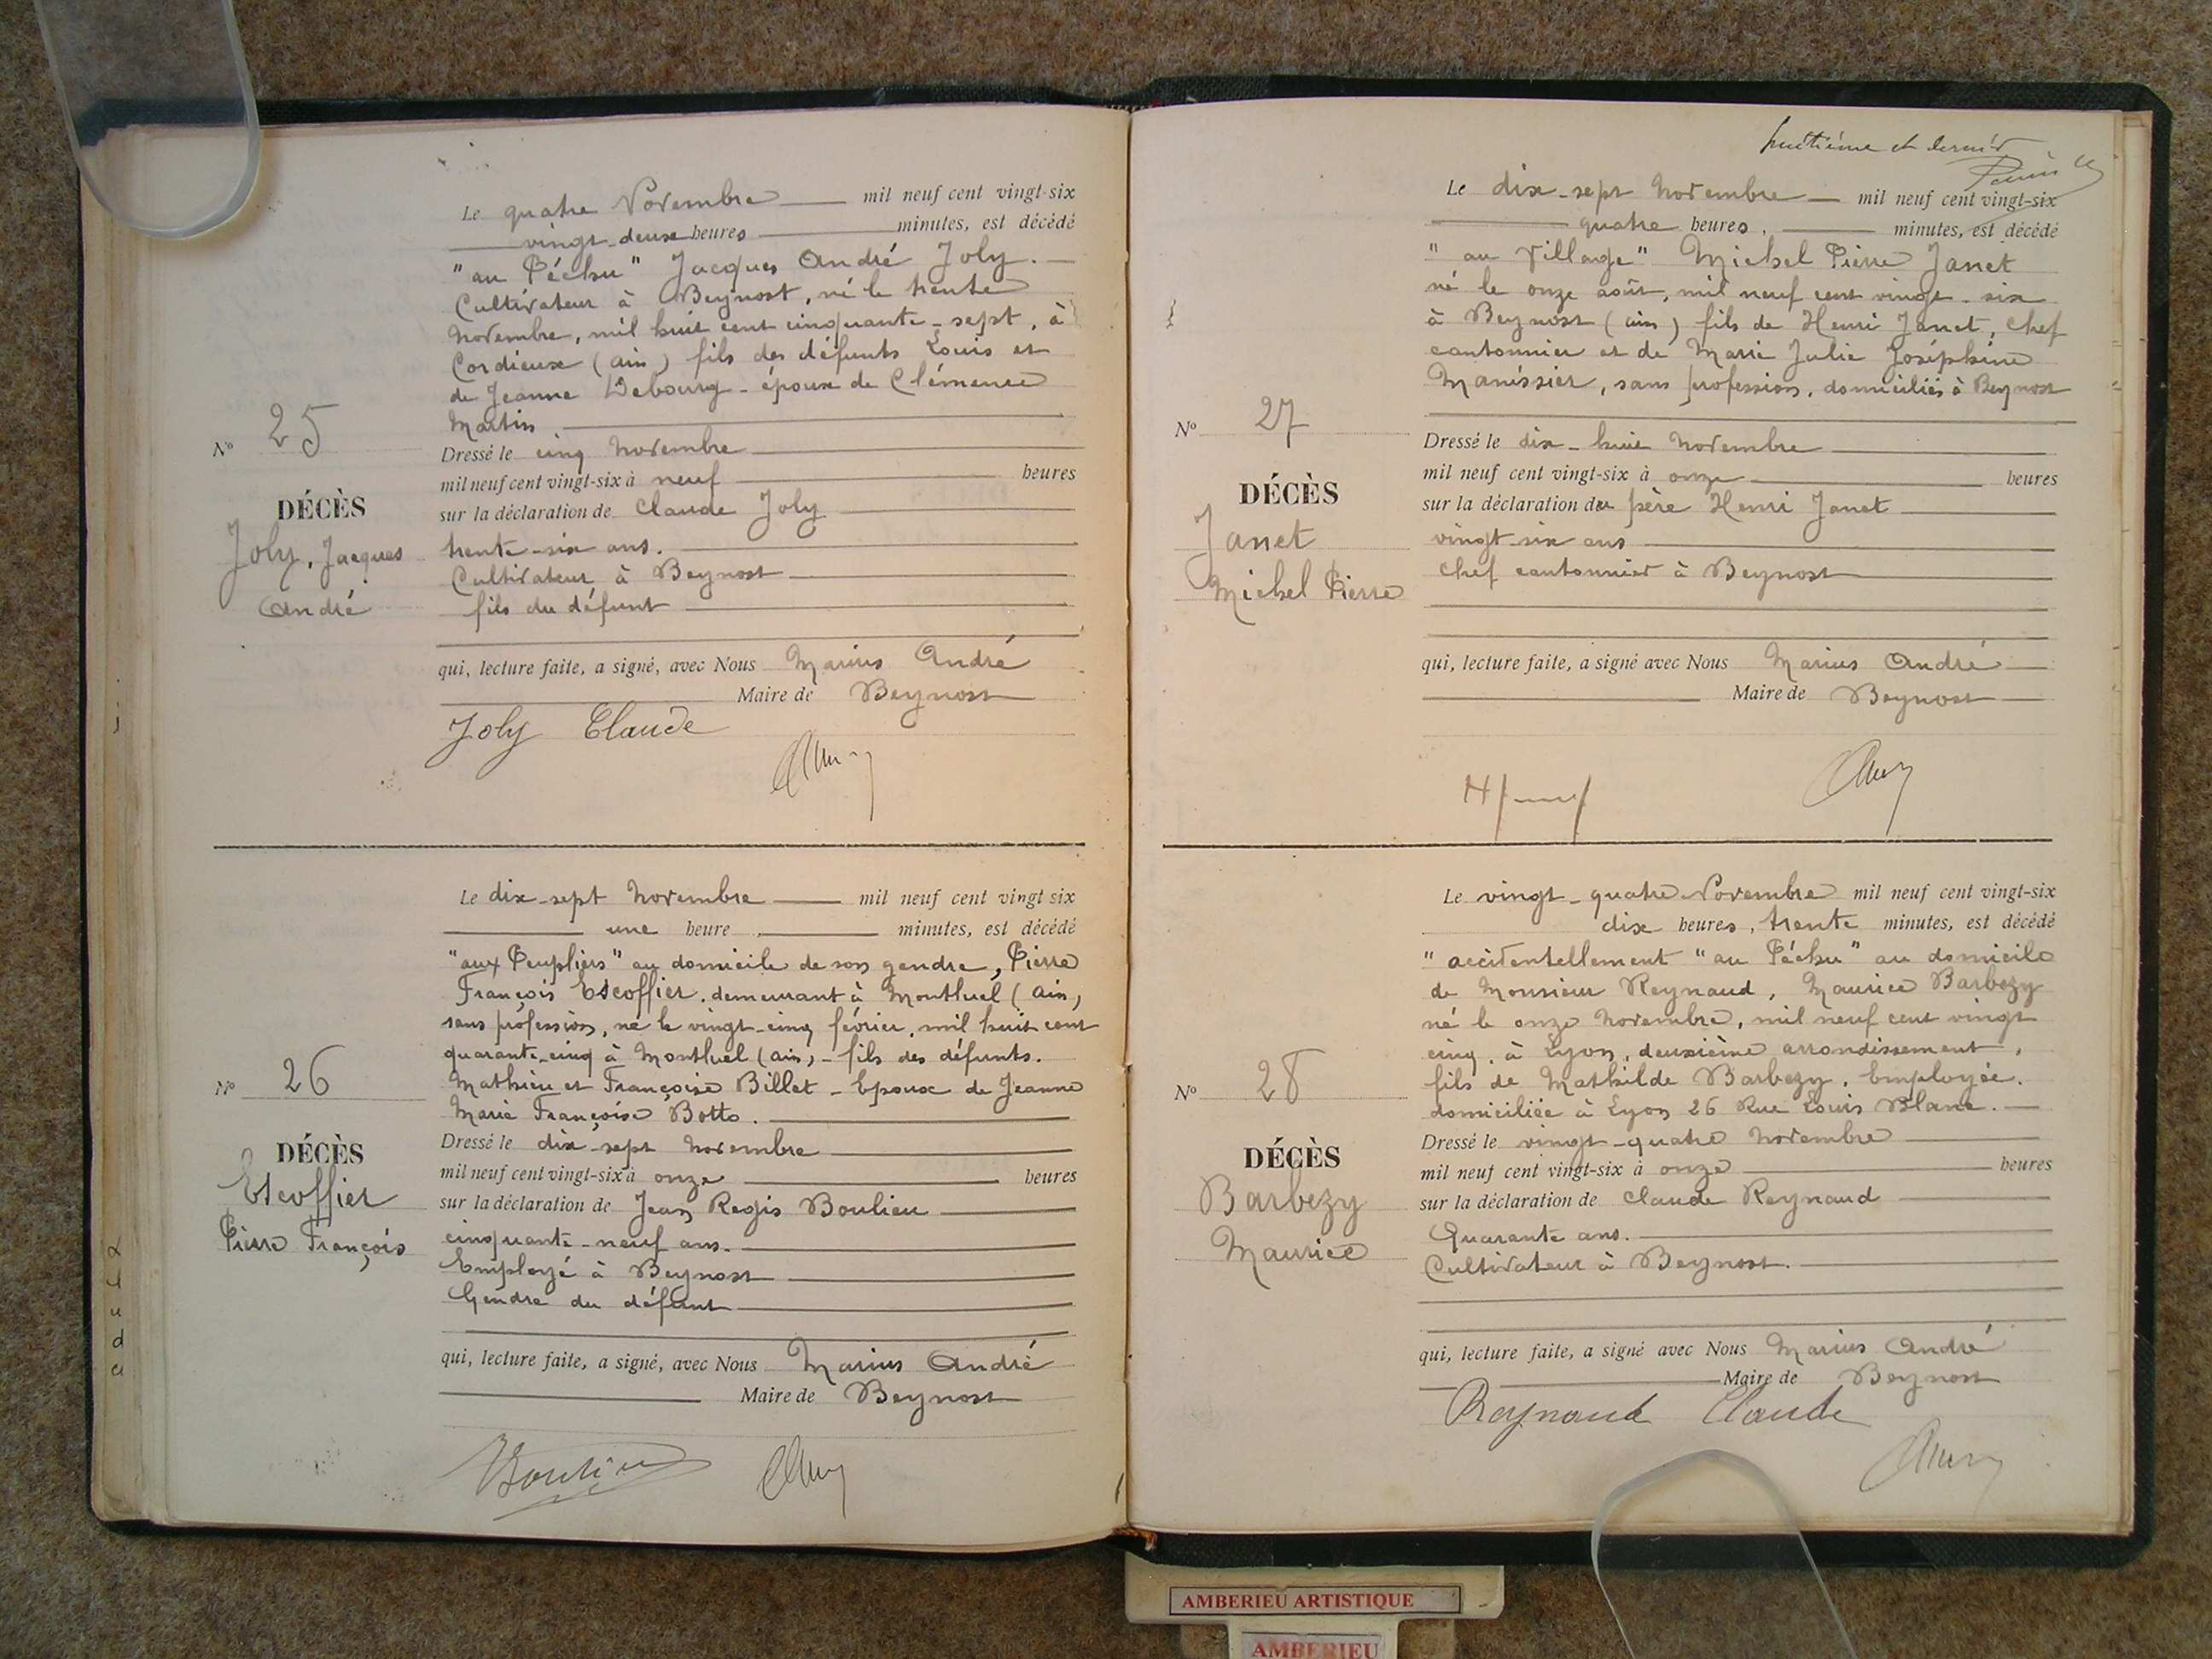 Le quatre Novembre mil neuf cent vingt-six
vingt-deux heures minutes, est décédé
"au Péchu" Jacques André Joly.
Cultivateur à Beynost, né le trente
novembre, mil huit cent cinquante-sept, à
Cordieux (ain) fils des défunts Louis et
de Jeanne Debourg - époux de Clémence
Martin
Dressé le cinq novembre
mil neuf cent vingt-six à neuf heures
sur la déclaration de Claude Joly
trente-six ans.
Cultivateur à Beynost
fils du défunt
qui, lecture faite, a signé, avec Nous Marius André
Maire de Beynost
Joly Claude
N° 25
DÉCÈS
Joly, Jacques
André
Le dix-sept novembre mil neuf cent vingt six
une heure minutes, est décédé
"aux Peupliers" au domicile de son gendre, Pierre
François Escoffier. demeurant à Montluel (ain)
sans profession, né le vingt-cinq février, mil huit cent
quarante-cinq à Montluel (ain) - fils des défunts.
Mathieu et Françoise Billet - Epoux de Jeanne
Marie Françoise Botto.
Dressé le dix sept novembre
mil neuf cent vingt-six à onze heures
sur la déclaration de Jean Regis Boulieu
cinquante-neuf ans.
Employé à Beynost
Gendre du défunt
qui, lecture faite, a signé, avec Nous Marius André
Maire de Beynost
Boulieu
N° 26
DÉCÈS
Escoffier
Pierre François
huitième et dernier
Le dix-sept novembre mil neuf cent vingt-six
quatre heures, minutes, est décédé
"au Village" Michel Pierre Janet
né le onze août, mil neuf cent vingt-six
à Beynost (ain) fils de Henri Janet, chef
cantonnier et de Marie Julie Joséphine
Manissier, sans profession, domiciliés à Beynost
Dressé le dix-huit novembre
mil neuf cent vingt-six à onze heures
sur la déclaration du père Henri Janet
vingt-six ans
chef cantonnier à Beynost
qui, lecture faite, a signé avec Nous Marius André
Maire de Beynost
N° 27
DÉCÈS
Janet
Michel Pierre
Le vingt-quatre Novembre mil neuf cent vingt-six
dix heures, trente minutes, est décédé
"accidentellement "au Péchu" au domicile
de Monsieur Reynaud, Maurice Barbezy
né le onze novembre, mil neuf cent vingt
cinq, à Lyon, deuxième arrondissement,
fils de Mathilde Barbezy. Employée.
domiciliée à Lyon 26 Rue Louis Blanc.
Dressé le vingt-quatre novembre
mil neuf cent vingt-six à onze heures
sur la déclaration de Claude Reynaud
Quarante ans.
Cultivateur à Beynost.
qui, lecture faite, a signé avec Nous Marius André
Maire de Beynost
Reynaud Claude
N° 28
DÉCÈS
Barbezy
Maurice
AMBERIEU ARTISTIQUE
AMBERIEU